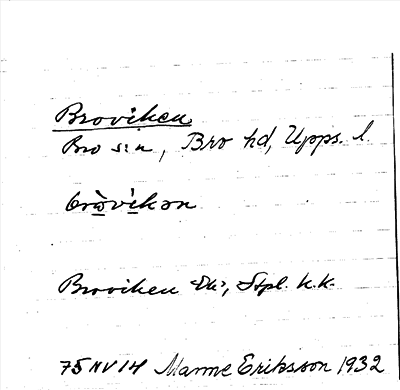 Broviken
Bro sn, Bro hd, Upps. l.
bròvikən
Broviken Ek., Stpl. h.k.
75 NV 14 Manne Eriksson 1932